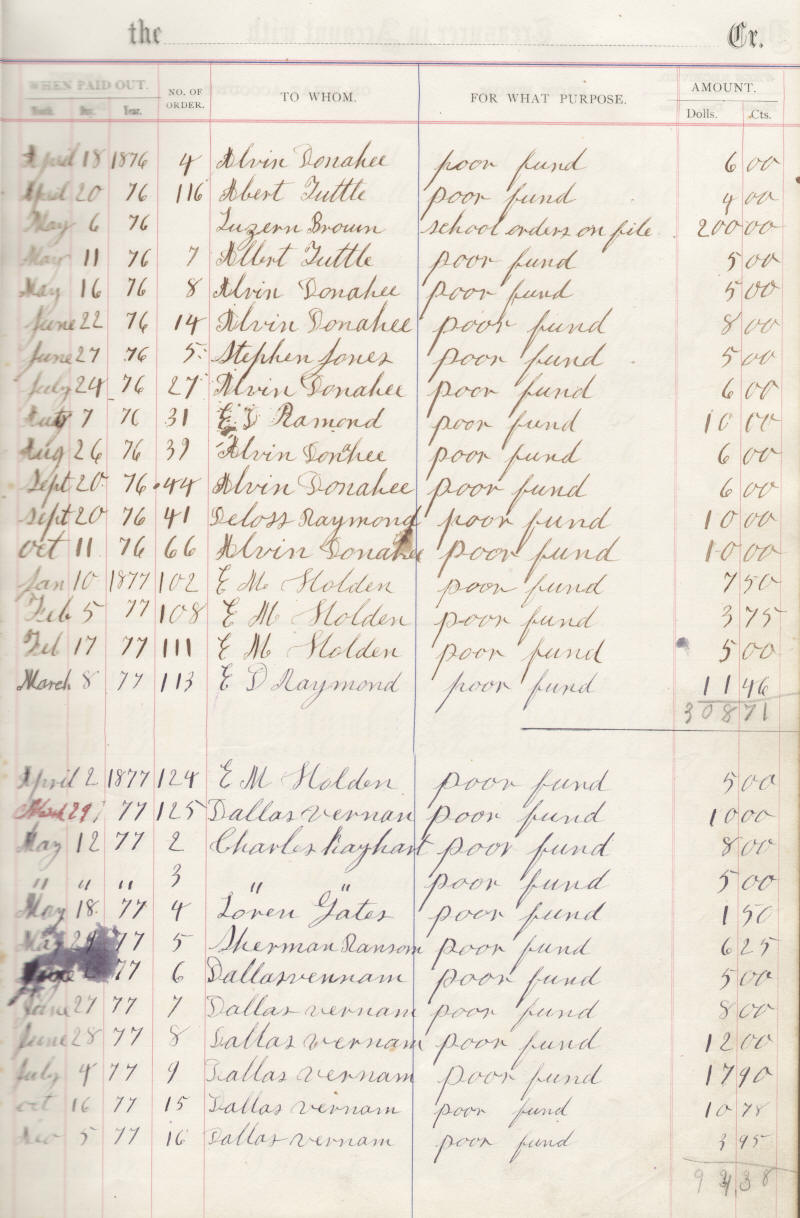 the Cr.
WHEN PAID OUT. NO. OF ORDER. TO WHOM. FOR WHAT PURPOSE. AMOUNT.
Month. Day. Year. Dolls. Cts.
April 18 1876 4 Alvin Donahee poor fund 6 00
April 20 76 116 Abert Tuttle poor fund 4 00
May 6 76 Luzern Brown school orders on file 200 00
May 11 76 7 Albert Tuttle poor fund 5 00
May 16 76 8 Alvin Donahee poor fund 5 00
June 22 76 14 Alvin Donahee poor fund 8 00
June 27 76 5 Stephen Jones poor fund 5 00
July 24 76 27 Alvin Donahee poor fund 6 00
7 76 31 E D Ramond poor fund 10 00
Aug 26 76 39 Alvin Donahee poor fund 6 00
Sept 20 76 44 Alvin Donahee poor fund 6 00
Sept 20 76 41 Deloss Raymond poor fund 10 00
Oct 11 76 66 Alvin Donahee poor fund 10 00
Jan 10 1877 102 E M Holden poor fund 7 50
Feb 5 77 108 E M Holden poor fund 3 75
Feb 17 77 111 E M Holden poor fund 5 00
March 8 77 113 E D Raymond poor fund 11 46
308 71
April 2 1877 124 E M Holden poor fund 5 00
March 29 77 125 Dallas vernan poor fund 10 00
May 12 77 2 Charles Kayhart poor fund 8 00
" " " 3 " " poor fund 5 00
May 18 77 4 Loren Gates poor fund 1 50
May 77 5 Sherman Ransom poor fund 6 25
June 77 6 Dallas vennam poor fund 5 00
June 27 77 7 Dallas vernam poor fund 8 00
June 28 77 8 Dallas vernam poor fund 12 00
July 4 77 9 Dallas vernam poor fund 17 90
oct 16 77 15 Dallas vernam poor fund 10 78
5 77 16 Dallas vernam poor fund 3 95